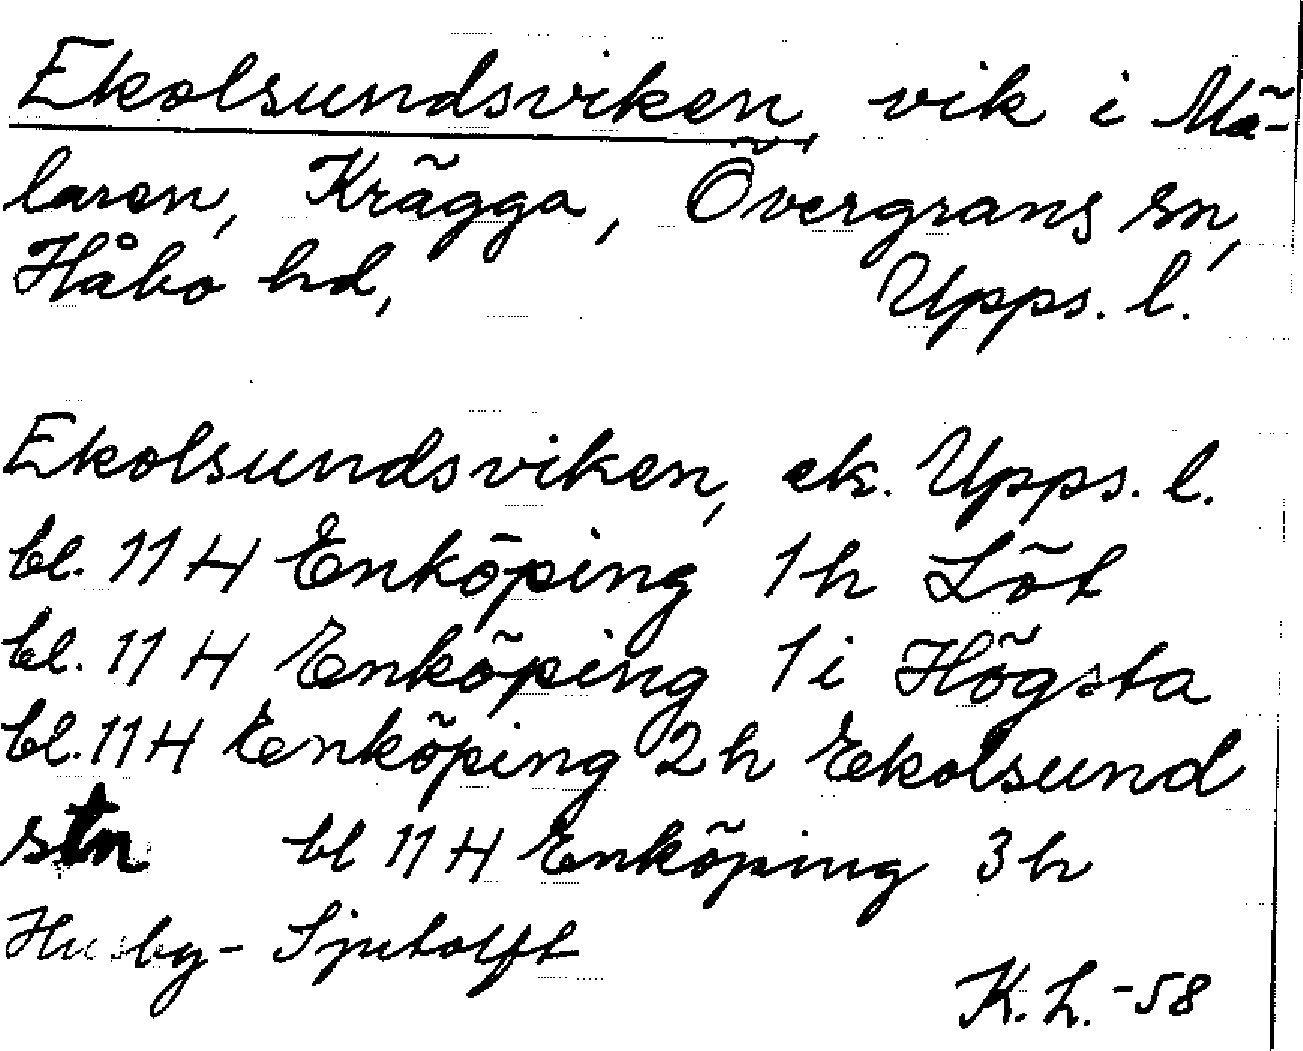 Ekolsundsviken, vik i Mä-
laren, Krägga, Övergrans sn,
Håbo hd, Upps. l.
Ekolsundsviken, ek. Upps. l.
bl. 11 H Enköping 1 h Löt
bl. 11 H Enköping 1 i Högsta
bl. 11 H Enköping 2 h Ekolsund
stn bl 11 H Enköping 3 h
Husby-Sjutolft
K. L. -58